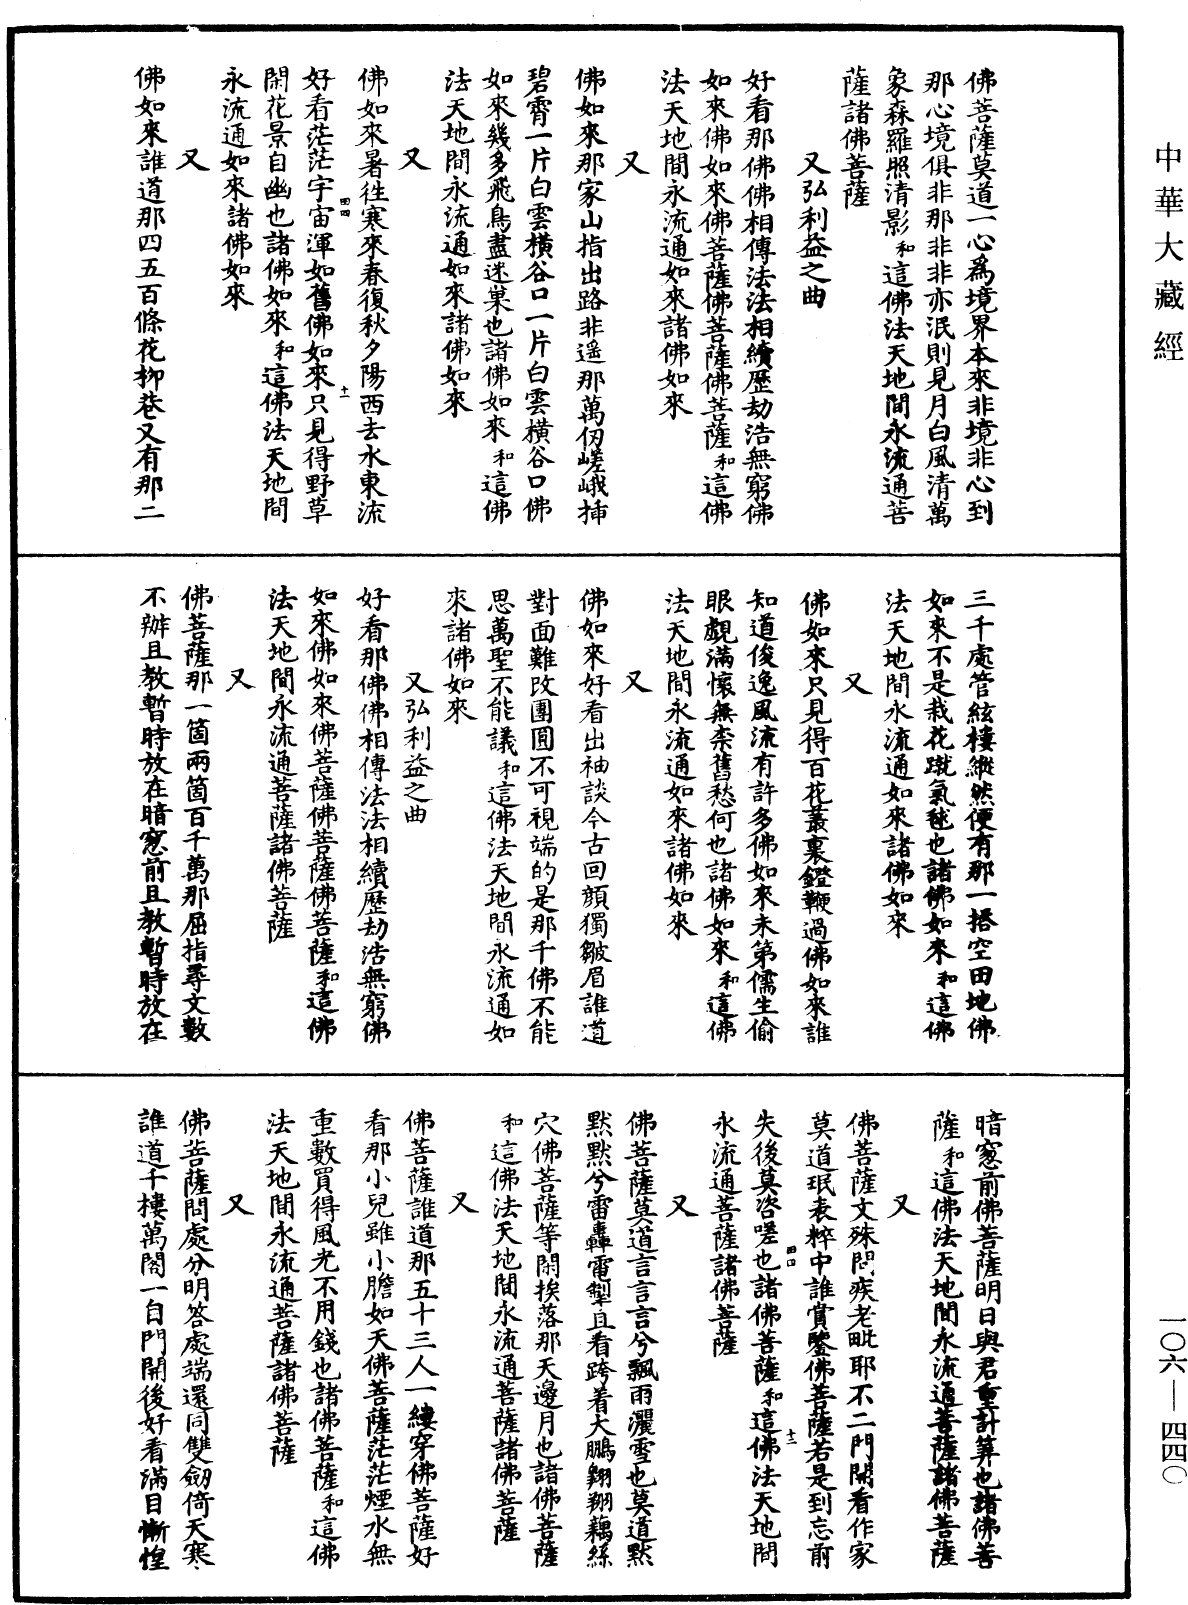 中華大藏經
佛菩薩莫道一心為境界本來非境非心到
那心境俱非那非非亦泯則見月白風清萬
象森羅照清影和這佛法天地間永流通菩
薩諸佛菩薩
又弘利益之曲
好看那佛佛相傳法法相續歷劫浩無窮佛
如來佛如來佛菩薩佛菩薩佛菩薩和這佛
法天地間永流通如來諸佛如來
又
佛如來那家山指出路非遥那萬仞嵯峨插
碧霄一片白雲橫谷口一片白雲橫谷口佛
如來幾多飛鳥盡迷巢也諸佛如來和這佛
法天地間永流通如來諸佛如來
又
佛如來暑往寒來春復秋夕陽西去水東流
好看茫茫宇宙渾如舊佛如來只見得野草
閑花景自幽也諸佛如來和這佛法天地間
永流通如來諸佛如來
又
佛如來誰道那四五百條花柳巷又有那二
三千處管絃樓縱然便有那一搭空田地佛
如來不是栽花蹴氣毬也諸佛如來和這佛
法天地間永流通如來諸佛如來
又
佛如來只見得百花叢裏鐙鞭過佛如來誰
知道俊逸風流有許多佛如來未第儒生偷
眼覷滿懷無柰舊愁何也諸佛如來和這佛
法天地間永流通如來諸佛如來
又
佛如來好看出袖談今古回顏獨皺眉誰道
對面難改團圓不可視端的是那千佛不能
思萬聖不能議和這佛法天地間永流通如
來諸佛如來
又弘利益之曲
好看那佛佛相傳法法相續歷劫浩無窮佛
如來佛如來佛菩薩佛菩薩佛菩薩和這佛
法天地間永流通菩薩諸佛菩薩
又
佛菩薩那一箇兩箇百千萬那屈指尋文數
不辦且教暫時放在暗窻前且教暫時放在
暗窻前佛菩薩明日與君重計算也諸佛菩
薩和這佛法天地間永流通菩薩諸佛菩薩
又
佛菩薩文殊問疾老毗耶不二門開看作家
莫道珉表粹中誰賞鑒佛菩薩若是到忘前
失後莫咨嗟也諸佛菩薩和這佛法天地間
永流通菩薩諸佛菩薩
又
佛菩薩莫道言言言兮飄雨灑雪也莫道默
默默兮雷轟電掣且看跨着大鵬翱翔藕絲
穴佛菩薩等閑挨落那天邊月也諸佛菩薩
和這佛法天地間永流通菩薩諸佛菩薩
又
佛菩薩誰道那五十三人一縷穿佛菩薩好
看那小兒雖小膽如天佛菩薩茫茫煙水無
重數買得風光不用錢也諸佛菩薩和這佛
法天地間永流通菩薩諸佛菩薩
又
佛菩薩問處分明答處端還同雙劒倚天寒
誰道千樓萬閣一自門開後好看滿目慚惶
一〇六—四四〇